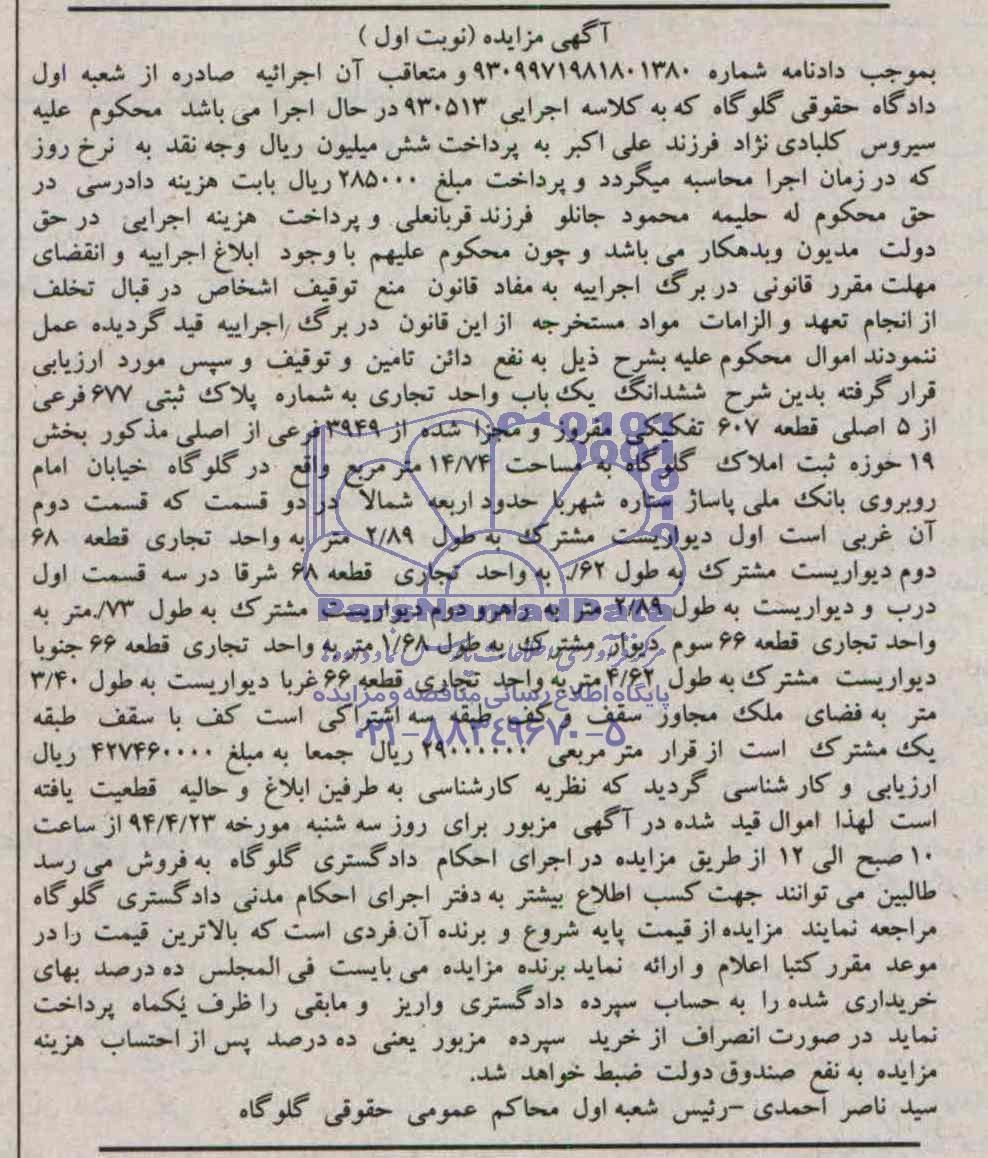 آگهی مزایده (نوبت اول)
بموجب دادنامه شماره ۹۳۰۹۹۷۱۹۸۱۸۰۱۳۸۰ و متعاقب آن اجرائیه صادره از شعبه اول
دادگاه حقوقی گلوگاه که به کلاسه اجرایی ۹۳۰۵۱۳ در حال اجرا می باشد محکوم علیه
سیروس کلبادی نژاد فرزند علی اکبر به پرداخت شش میلیون ریال وجه نقد به نرخ روز
که در زمان اجرا محاسبه میگردد و پرداخت مبلغ ۲۸۵۰۰۰ ریال بابت هزینه دادرسی در
حق محکوم له حلیمه محمود جانلو فرزند قربانعلی و پرداخت هزینه اجرایی در حق
دولت مدیون وبدهکار می باشد و چون محکوم علیهم با وجود ابلاغ اجراییه و انقضای
مهلت مقرر قانونی در برگ اجراییه به مفاد قانون منع توقیف اشخاص در قبال تخلف
از انجام تعهد و الزامات مواد مستخرجه از این قانون در برگ اجراییه قید گردیده عمل
ننمودند اموال محکوم علیه بشرح ذیل به نفع دائن تامین و توقیف و سپس مورد ارزیابی
قرار گرفته بدین شرح ششدانگ یک باب واحد تجاری به شماره پلاک ثبتی ۶۷۷ فرعی
از ۵ اصلی قطعه ۶۰۷ تفکیکی مفروز و مجزا شده از ۳۹۴۹ فرعی از اصلی مذکور بخش
۱۹ حوزه ثبت املاک گلوگاه به مساحت ۱۴/۷۴ متر مربع واقع در گلوگاه خیابان امام
روبروی بانک ملی پاساژ ستاره شهربا حدود اربعه شمالا در دو قسمت که قسمت دوم
آن غربی است اول دیواریست مشترک به طول ۲/۸۹ متر به واحد تجاری قطعه ۶۸
دوم دیواریست مشترک به طول ۶۲/. به واحد تجاری قطعه ۶۸ شرقا در سه قسمت اول
درب و دیواریست به طول ۲/۸۹ متر به راهرو دوم دیواریست مشترک به طول ۷۳/.متر به
واحد تجاری قطعه ۶۶ سوم دیوار مشترک به طول ۱/۶۸ متر به واحد تجاری قطعه ۶۶ جنوبا
دیواریست مشترک به طول ۴/۶۲ متر به واحد تجاری قطعه ۶۶ غربا دیواریست به طول ۳/۴۰
متر به فضای ملک مجاور سقف و کف طبقه سه اشتراکی است کف با سقف طبقه
یک مشترک است از قرار متر مربعی ۲۹۰۰۰۰۰۰ ریال جمعا به مبلغ ۴۲۷۴۶۰۰۰۰ ریال
ارزیابی و کارشناسی گردید که نظریه کارشناسی به طرفین ابلاغ و حالیه قطعیت یافته
است لهذا اموال قید شده در آگهی مزبور برای روز سه شنبه مورخه ۹۴/۴/۲۳ از ساعت
۱۰ صبح الی ۱۲ از طریق مزایده در اجرای احکام دادگستری گلوگاه به فروش می رسد
طالبین می توانند جهت کسب اطلاع بیشتر به دفتر اجرای احکام مدنی دادگستری گلوگاه
مراجعه نمایند مزایده از قیمت پایه شروع و برنده آن فردی است که بالاترین قیمت را در
موعد مقرر کتبا اعلام و ارائه نماید برنده مزایده می بایست فی المجلس ده درصد بهای
خریداری شده را به حساب سپرده دادگستری واریز و مابقی را ظرف یکماه پرداخت
نماید در صورت انصراف از خرید سپرده مزبور یعنی ده درصد پس از احتساب هزینه
مزایده به نفع صندوق دولت ضبط خواهد شد.
سید ناصر احمدی –رئیس شعبه اول محاکم عمومی حقوقی گلوگاه
ParsNamadData
پایگاه اطلاع رسانی مناقصه و مزایده
۰۲۱-۸۸۳۴۹۶۷۰-۵